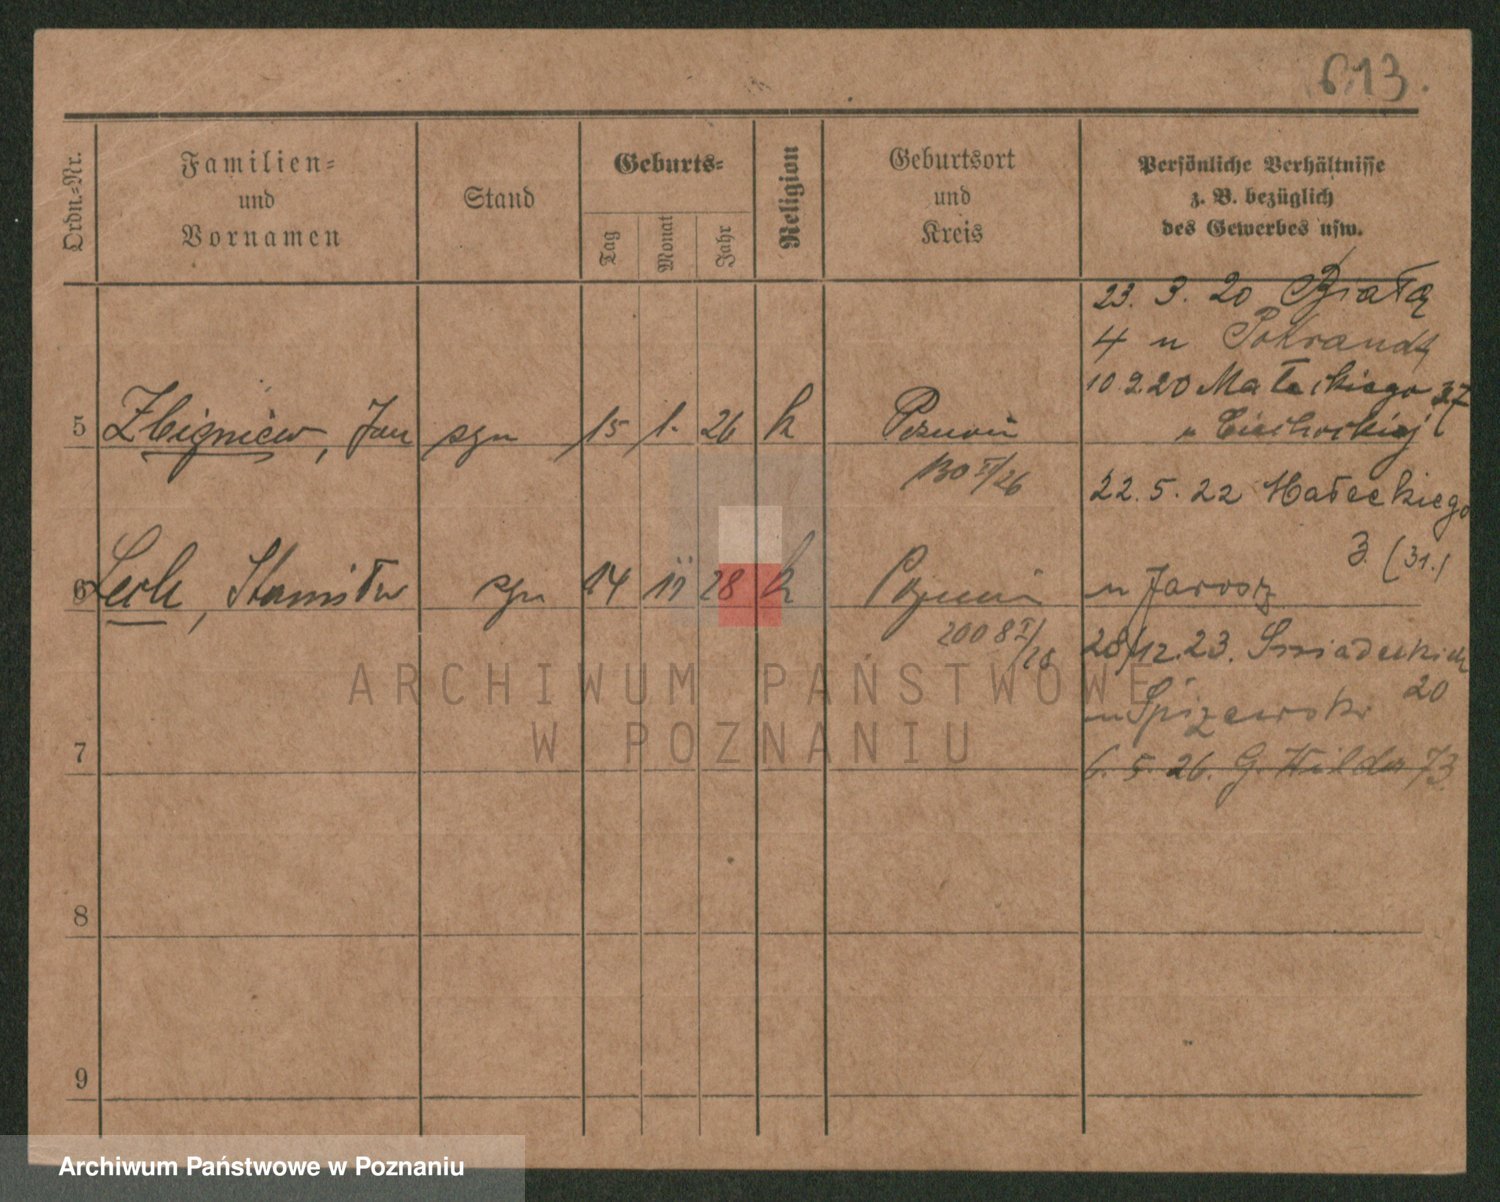 613.
Ordn.-Nr.
Familien-
und
Vornamen
Stand
Geburts-
Tag
Monat
Jahr
Religion
Geburtsort
und
Kreis
Persönliche Verhältnisse
z. B. bezüglich
des Gewerbes usw.
23. 3. 20
4 u
10.9.20 Małeckiego 37
u Cichockiej
5 Zbigniew, Jan syn 15 1. 26 k Poznań
22. 5. 22 Małeckiego
3 (31.)
6 Lech, Stanisław syn 14 11 28 k Poznań
u Jarosz
28/12. 23. Śniadeckich
20
u Spiżewski
7
6. 5. 26. G. Wilda 73.
8
9
ARCHIWUM PAŃSTWOWE
W POZNANIU
Archiwum Państwowe w Poznaniu